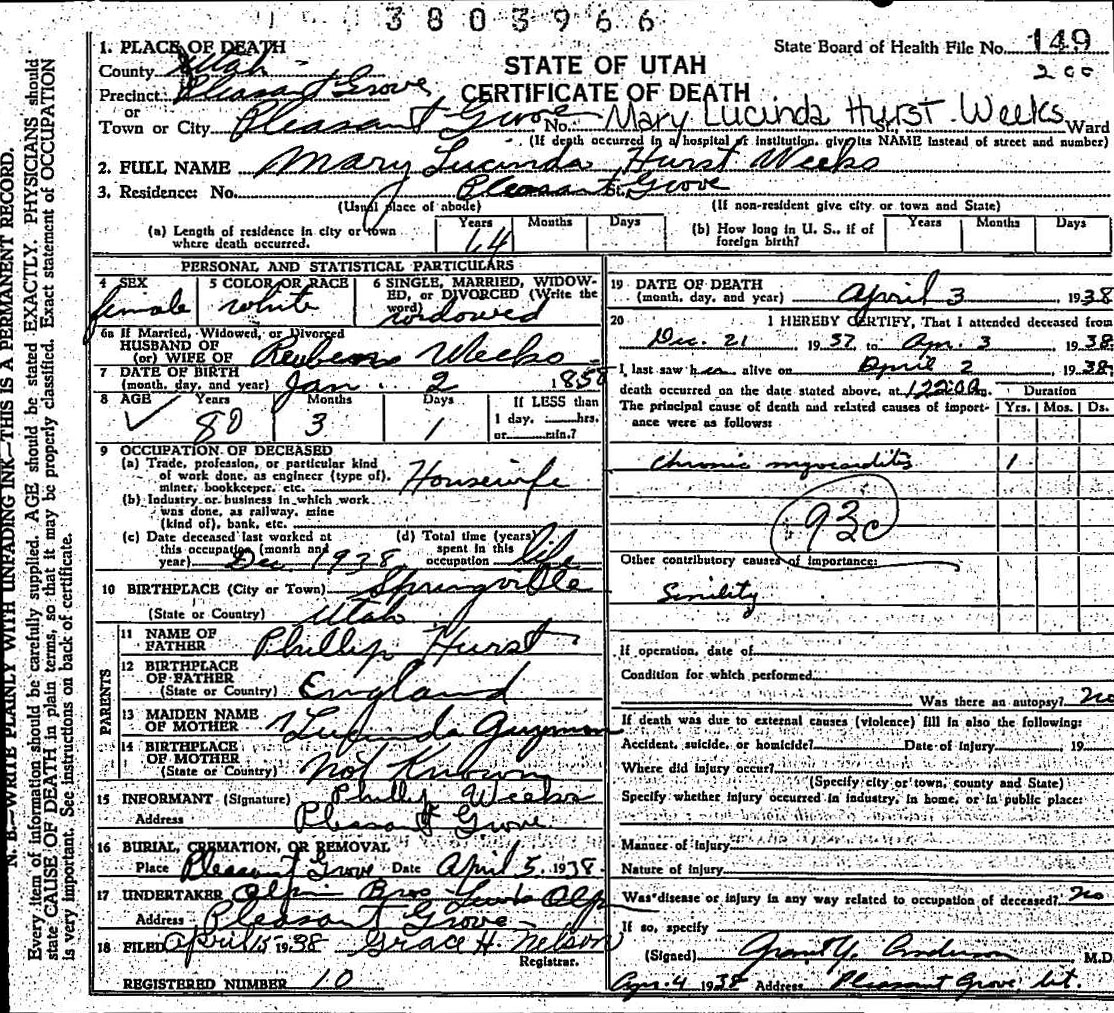 3803966
1. PLACE OF DEATH
County Utah
Precinct: Pleasant Grove
or
Town or City Pleasant Grove No. Mary Lucinda Hurst Weeks St., Ward
State Board of Health File No. 149
200
STATE OF UTAH
CERTIFICATE OF DEATH
(If death occurred in a hospital or institution, give its NAME instead of street and number)
2. FULL NAME Mary Lucinda Hurst Weeks
3. Residence: No. Pleasant St. Grove
(Usual place of abode) (If non-resident give city or town and State)
(a) Length of residence in city or town where death occurred. Years 64 Months Days
(b) How long in U. S., if of foreign birth? Years Months Days
PERSONAL AND STATISTICAL PARTICULARS
4 SEX female
5 COLOR OR RACE white
6 SINGLE, MARRIED, WIDOWED, or DIVORCED (Write the word) widowed
6a If Married, Widowed, or Divorced
HUSBAND OF
(or) WIFE OF Reubens Weeks
7 DATE OF BIRTH
(month, day, and year) Jan. 2 1858
8 AGE Years 80 Months 3 Days 1 If LESS than
1 day, hrs.
or min.?
9 OCCUPATION OF DECEASED
(a) Trade, profession, or particular kind
of work done, as engineer (type of),
miner, bookkeeper, etc. Housewife
(b) Industry or business in which work
was done, as railway, mine
(kind of), bank, etc.
(c) Date deceased last worked at
this occupation (month and
year) Dec. 1938
(d) Total time (years)
spent in this
occupation life
10 BIRTHPLACE (City or Town) Springville
(State or Country) Utah
PARENTS
11 NAME OF
FATHER Phillip Hurst
12 BIRTHPLACE
OF FATHER
(State or Country) England
13 MAIDEN NAME
OF MOTHER Lucinda Guymon
14 BIRTHPLACE
OF MOTHER
(State or Country) Not Known
15 INFORMANT (Signature) Phillip Weeks
Address Pleasant Grove
16 BURIAL, CREMATION, OR REMOVAL
Place Pleasant Grove Date April 5, 1938
17 UNDERTAKER Bros
Address Pleasant Grove
18 FILED April 15 1938 Grace H. Nelson
Registrar.
REGISTERED NUMBER 10
19 DATE OF DEATH
(month, day, and year) April 3, 1938
20 I HEREBY CERTIFY, That I attended deceased from
Dec. 21 1937, to Apr. 3 1938
I last saw her alive on April 2 1938
death occurred on the date stated above, at m.
The principal cause of death and related causes of importance were as follows:
Duration
Yrs. Mos. Ds.
Chronic myocarditis 1
93c
Other contributory causes of importance:
Sinility
If operation, date of
Condition for which performed
Was there an autopsy? No
If death was due to external causes (violence) fill in also the following:
Accident, suicide, or homicide? Date of injury 19
Where did injury occur?
(Specify city or town, county and State)
Specify whether injury occurred in industry, in home, or in public place:
Manner of injury
Nature of injury
Was disease or injury in any way related to occupation of deceased? No
If so, specify
(Signed) Grant Y. Anderson M.D.
Apr. 4 1938 Address Pleasant Grove, Ut.
N. B.—WRITE PLAINLY WITH UNFADING INK—THIS IS A PERMANENT RECORD.
Every item of information should be carefully supplied. AGE should be stated EXACTLY. PHYSICIANS should
state CAUSE OF DEATH in plain terms, so that it may be properly classified. Exact statement of OCCUPATION
is very important. See instructions on back of certificate.